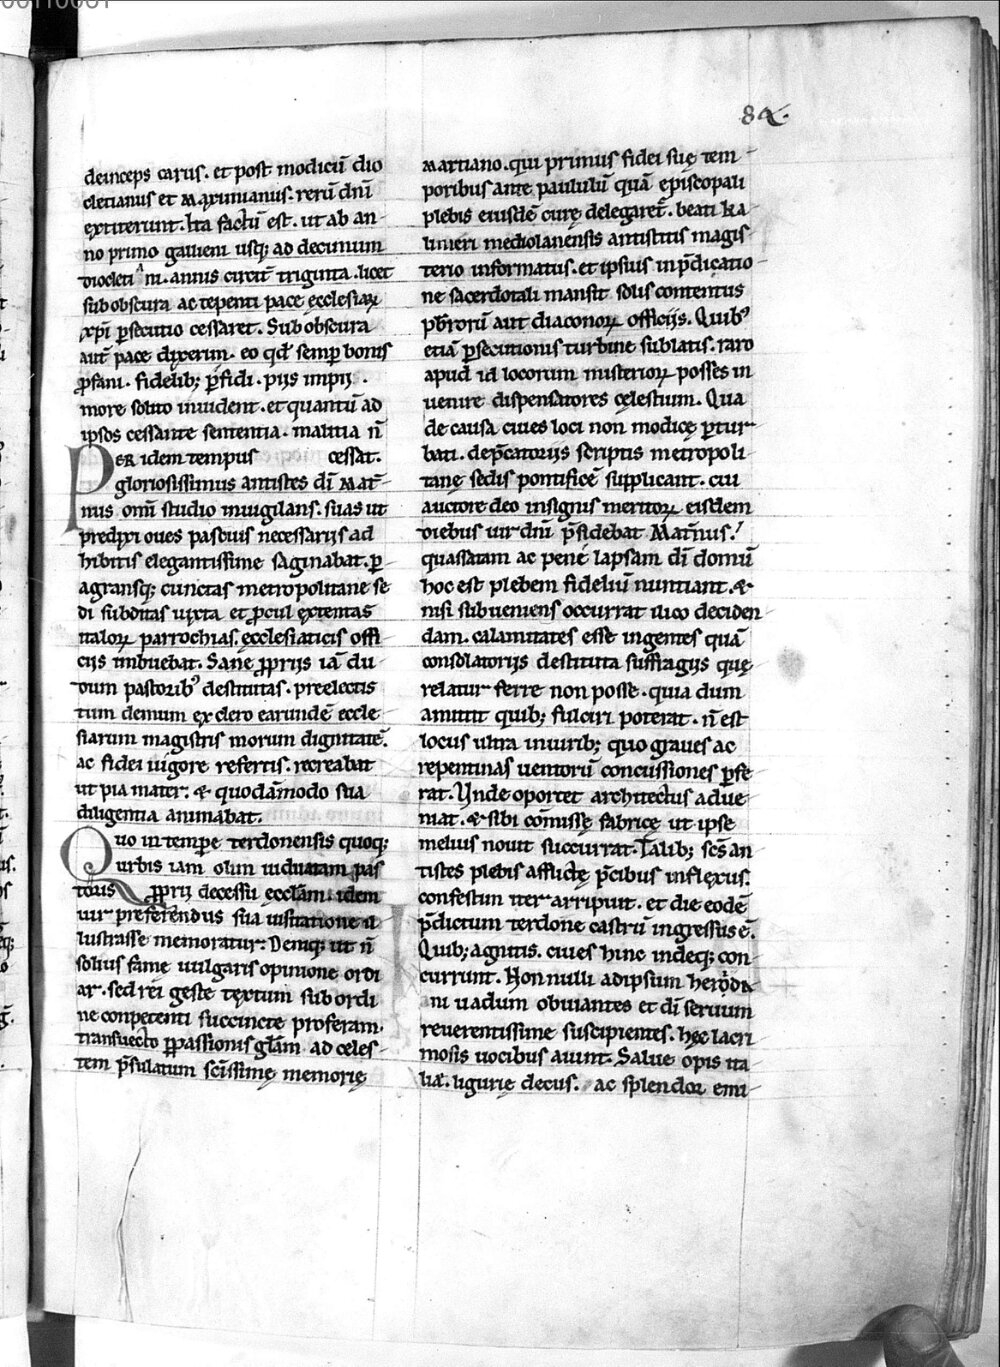 84.
deinceps carus. et post modicũ dio
cletianus et Maximianus. rerũ dn̄i
extiterunt. Ita factũ est. ut ab an-
no primo gallieni usq; ad decimum
diocletiani. annis circit̃ triginta. licet
sub obscura ac tepenti pace ecclesiaꝝ
xp̄i ꝑsecutio cessaret. Sub obscura
aut̃ pace dixerim. eo qđ semꝑ bonis
ꝓfani. fidelib; ꝑfidi. pijs impij.
more solito inuident. et quantũ ad
ipsos cessante sententia. malitia n̄
Per idem tempus cessat.
gloriosissimus antistes dī Mat̃-
nus omī studio inuigilans. suas ut
predixi oues pascuis necessarijs ad
hibitis elegantissime saginabat. ꝑ
agransq; cunctas metropolitane se
di subditas iuxta et ꝓcul extentas
italoꝝ parrochias. ęcclesiaticis offi
cijs imbuebat. Sane ꝓprijs iã du
dum pastorib⁹ destitutas. preelectis
tum demum ex clero earundẽ eccle
siarum magistris morum dignitatẽ.
ac fidei uigore refertis. recreabat
ut pia mater. & quodãmodo sua
diligentia animabat.
Quo in tempe terdonensis quoq;
urbis iam olim uiduatam pas
toris ꝓprij decessu ecclãm. idem
uir preferendus sua uisitatione il
lustrasse memoratur. Deniq; ut n̄
solius fame uulgaris opinione ordi
ar. sed rei geste textum sub ordi
ne conpetenti succincte proferam.
transuecto ꝑ passionis glãm ad celes-
tem p̄sulatum scīssimę memorię
Martiano. qui primus fidei suę tem
poribus ante paululũ quã episcopali
plebis eiusdẽ curę delegaret̃. beati ka
limeri mediolanensis antistitis magis
terio informatus. et ipsius in p̄dicatio
ne sacerdotali mansit solis contentus
pb̄rorũ aut diaconoꝝ officijs. Quib⁹
etiã ꝑsecutionis turbine sublatis. raro
apud id locorum misterioꝝ posses in
uenire dispensatores cęlestium. Qua
de causa ciues loci non modicę ꝑtur
bati. dep̄catorijs scriptis metropoli
tanę sedis pontificẽ supplicant. cui
auctore deo insignis meritoꝝ eisdem
diebus uir dn̄i p̄sidebat Mat̃nus.
quassatam ac pene lapsam dī domũ
hoc est plebem fideliũ nuntiant. &
nisi subueniens occurrat ilico deciden
dam. calamitates esse ingentes quã
consolatorijs destituta suffragijs quę
relatur ferre non posse. quia dum
amittit quib; fulciri poterat. n̄ est
locus ultra in uirib; quo graues ac
repentinas uentorũ concussiones ꝑfe
rat. Vnde oportet architectus adue
niat. & sibi cõmissę fabricę ut ipse
melius nouit succurrat. Talib; scs̄ an
tistes plebis afflictę p̄cibus inflexus.
confestim iter arripuit. et die eodẽ
p̄dictum terdone castrũ ingressus ẽ.
Quib; agnitis. ciues hinc indeq; con
currunt. Nonnulli ad ipsum herodi
ani uadum obuiantes et dī seruum
reuerentissime suscipientes. hęc lacri
mosis uocibus aiunt. Salue opis ita
lię. ligurię decus. ac splendor emi